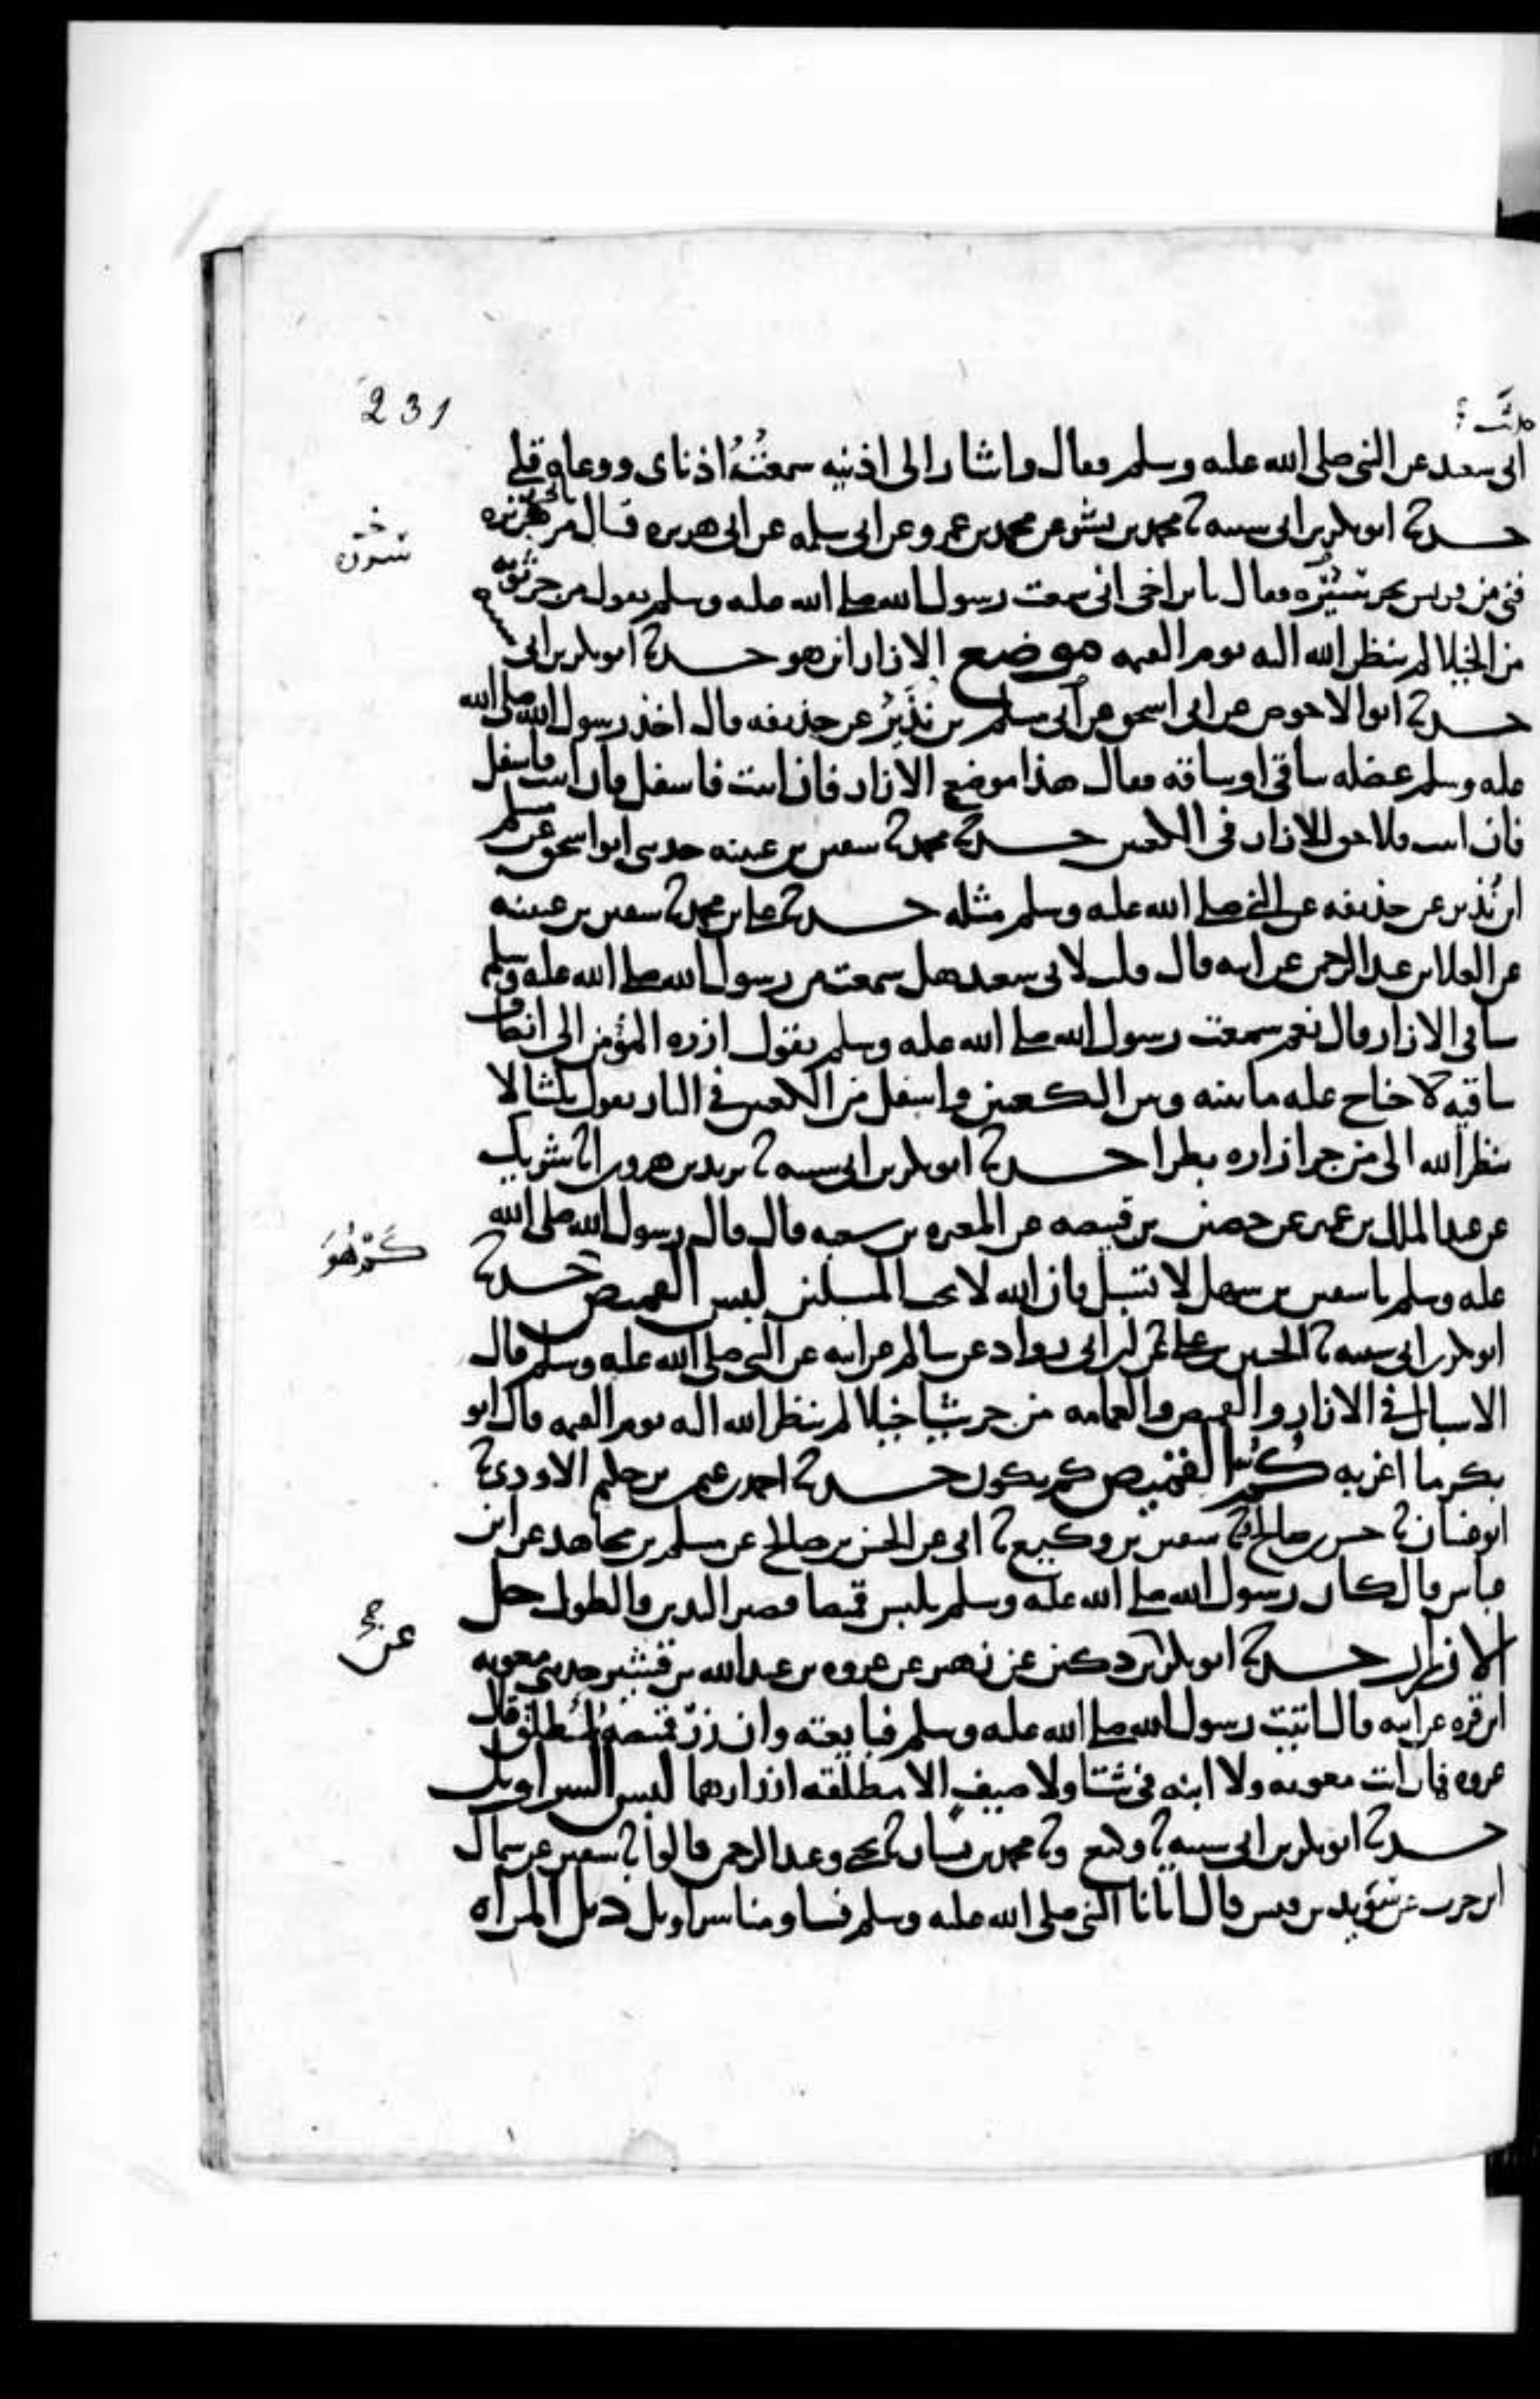 231
ابى سعيد عن النبى صلى الله عليه وسلم فقال واشار الى اذنيه سمعَتْهُ اذناى ووعاه قلبى
حدثنا ابو بكر بن ابى شيبة نا محمد بن بشر عن محمد بن عمرو عن ابى سلمه عن ابى هريره قال مر بابى هريره
فتى من قريش يجر سَبَلَه فقال يابن اخى انى سمعت رسول الله صلى الله عليه وسلم يقول من جر ثوبه
من الخيلا لم ينظر الله اليه يوم القيمه موضع الازار اين هو حدثنا ابو بكر بن ابى شيبه
نا ابو الاحوص عن ابى اسحق عن مسلم بن نُذَيْر عن حذيفه قال اخذ رسول الله صلى الله
عليه وسلم عضله ساقى او ساقه فقال هذا موضع الازار فان ابيت فاسفل فان ابيت فاسفل
فان ابيت فلا حق للازار فى الكعبين حدثنا على بن محمد نا سفين بن عيينه حدثنى ابو اسحق عن مسلم
ابن نُذير عن حذيفه عن النبى صلى الله عليه وسلم مثله حدثنا على بن محمد نا سفين بن عيينه
عن العلا بن عبد الرحمن عن ابيه قال قلت لابى سعيد هل سمعت من رسول الله صلى الله عليه وسلم
شيا فى الازار قال نعم سمعت رسول الله صلى الله عليه وسلم يقول ازره المؤمن الى انصاف
ساقيه لا جناح عليه ما بينه وبين الكعبين وما اسفل من الكعبين فى النار يقول ثلثا لا
ينظر الله الى من جر ازاره بطرا حدثنا ابو بكر بن ابى شيبه نا يزيد بن هرون انا شريك
عن عبد الملك بن عمير عن حصين بن قبيصه عن المغيره بن شعبه قال قال رسول الله صلى الله
عليه وسلم يا سفين بن سهل لا تسبل فان الله لا يحب المسبلين لبس القميص حدثنا
ابو بكر بن ابى شيبه نا الحسين بن على عن ابن ابى رواد عن سالم عن ابيه عن النبى صلى الله عليه وسلم قال
الاسبال فى الازار والقميص والعمامه من جر شيا خيلا لم ينظر الله اليه يوم القيمه قال ابو
بكر ما اغربه كُمُّ القميص كم يكون حدثنا احمد بن عثمن بن حكيم الاودى نا
ابو غسان نا حسن بن صالح ح ونا سفين بن وكيع نا ابى عن الحسن بن صالح عن مسلم عن مجاهد عن ابن
عباس قال كان رسول الله صلى الله عليه وسلم يلبس قميصا قصير اليدين والطول حل
الازرار حدثنا ابو بكر نا ابن دكين عن زهير عن عروه بن عبد الله بن قشير حدثنى معويه
ابن قره عن ابيه قال اتيت رسول الله صلى الله عليه وسلم فبايعته وان زرّ قميصه لمطلق قال
عروه فما رايت معويه ولا ابنه فى شتا ولا صيف الا مطلقه ازرارهما لبس السراويل
حدثنا ابو بكر بن ابى شيبه نا وكيع ونا محمد بن بشار نا يحيى وعبد الرحمن قالوا نا سفين عن سماك
ابن حرب عن سويد بن قيس قال اتانا النبى صلى الله عليه وسلم فساومنا سراويل ذيل المراه